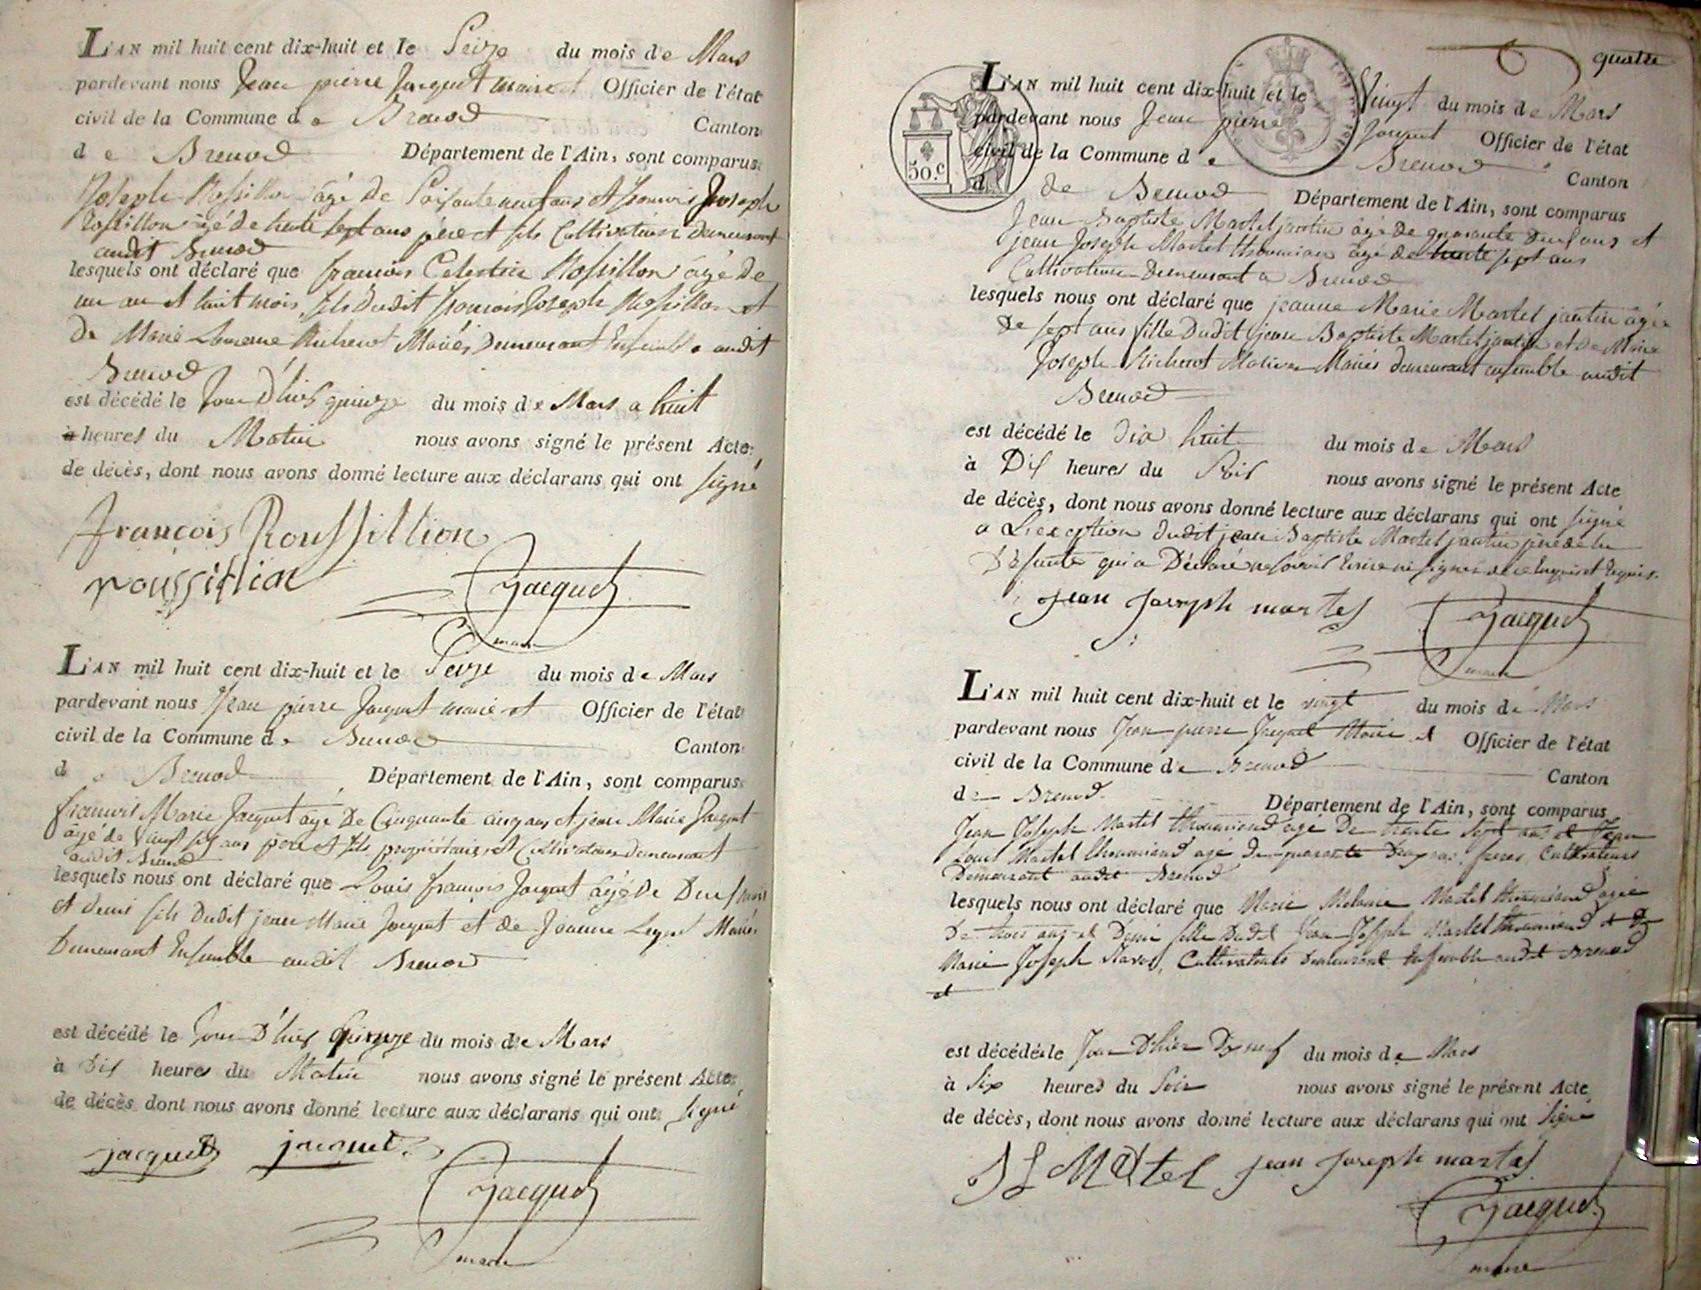 L'AN mil huit cent dix-huit et le Seize du mois de Mars
pardevant nous Jean pierre Jacquet maire et Officier de l'état
civil de la Commune de Brenod Canton
de Brenod Département de l'Ain, sont comparus
Joseph Rossillon âgé de Soixante neuf ans et francois Joseph
Rossillon âgé de trente sept ans père et fils Cultivateurs Demeurant
audit Brenod
lesquels ont déclaré que francois Celestin Rossillon âgé de
un an et huit mois, fils Dudit francois Joseph Rossillon et
de Marie Richerot Mariés Demeurant Ensemble audit
Brenod
est décédé le Jour D'hier quinze du mois de Mars a huit
à heures du Matin nous avons signé le présent Acte
de décès, dont nous avons donné lecture aux déclarans qui ont signé
François Roussillion
roussillion
Jacquet
maire
L'AN mil huit cent dix-huit et le Seize du mois de Mars
pardevant nous Jean pierre Jacquet maire et Officier de l'état
civil de la Commune de Brenod Canton
de Brenod Département de l'Ain, sont comparus
francois Marie Jacquet âgé De Cinquante cinq ans et jean Marie Jacquet
âgé de vingt six ans père et fils propriétaires et Cultivateurs demeurant
audit Brenod
lesquels nous ont déclaré que Louis francois Jacquet âgé De Deux ans
et demi fils Dudit jean Marie Jacquet et de Jeanne Mariés
Demeurant Ensemble audit Brenod
est décédé le Jour D'hier Quinze du mois de Mars
à Dix heures du Matin nous avons signé le présent Acte
de décès dont nous avons donné lecture aux déclarans qui ont signé
jacquet jacquet
Jacquet
maire
quatre
50.c
L'AN mil huit cent dix-huit et le Vingt du mois de Mars
pardevant nous Jean pierre Jacquet Officier de l'état
civil de la Commune de Brenod Canton
d de Brenod Département de l'Ain, sont comparus
Jean Baptiste Martel jantin âgé de quarante Deux ans et
jean Joseph Martel thoumian âgé de trente sept ans
Cultivateurs Demeurant a Brenod
lesquels nous ont déclaré que jeanne Marie Martel jantin âgée
De sept ans fille Dudit jean Baptiste Martel jantin et de Marie
Joseph Richerot Mariés demeurant ensemble audit
Brenod
est décédé le dix huit du mois de Mars
à Dix heures du Soir nous avons signé le présent Acte
de décès, dont nous avons donné lecture aux déclarans qui ont signé
a L'exception dudit jean Baptiste Martel jantin père de la
Défunte qui a Déclaré ne savoir Ecrire ni signer de ce Enquis et Requis.
jean Joseph martel
Jacquet
maire
L'AN mil huit cent dix-huit et le vingt du mois de Mars
pardevant nous Jean pierre Jacquet Maire et Officier de l'état
civil de la Commune de Brenod Canton
de Brenod. Département de l'Ain, sont comparus
Jean Joseph Martel thoumiand agé De trente sept ans et Jean
Louis Martel thoumiand age de quarante ans, freres, Cultivateurs
Demeurant audit Brenod
lesquels nous ont déclaré que Marie Melanie Martel thoumiand agée
De trois ans et Demi fille Dudit Jean Joseph Martel thoumiand et De
Marie Joseph, Cultivateurs Demeurant Ensemble audit Brenod
et
est décédé le Jour D'hier Dix neuf du mois de Mars
à Six heures du Soir nous avons signé le présent Acte
de décès, dont nous avons donné lecture aux déclarans qui ont Signé
J L Martel jean Joseph martel
Jacquet
maire